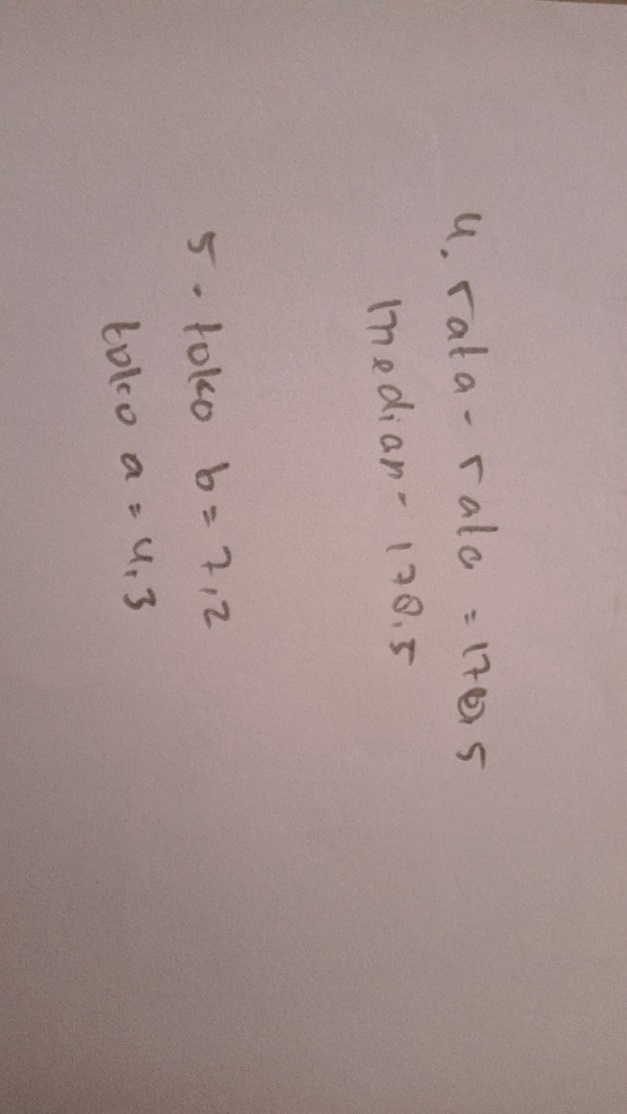 4. rata-rata = 170,5
median - 170.5
5. toko b = 7,2
toko a = 4,3